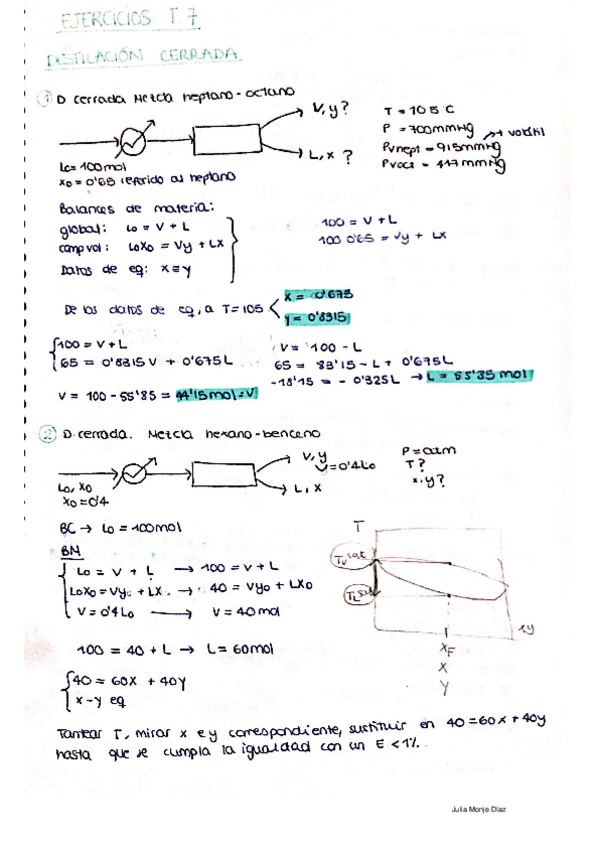 EJERCICIOS T 7
DESTILACIÓN CERRADA
① D cerrada Mezcla heptano-octano
V, y?
L, x ?
Lo= 100mol
xo = 0'65 referido al heptano
T = 105 C
P = 700mmHg
Pvhept = 915mmHg → + volátil
Pvoct = 417mmHg
Balances de materia:
global: Lo = V + L
comp vol: LoXo = Vy + LX
Datos de eq: x=y
100 = V + L
100 0'65 = Vy + LX
De los datos de eq, a T=105
X = 0'675
Y = 0'8315
100 = V + L
65 = 0'8315V + 0'675L
V = 100 - L
65 = 83'15 - L + 0'675L
-18'15 = - 0'325L → L = 55'85 mol
V = 100 - 55'85 = 44'15mol = V
② D. cerrada. Mezcla hexano-benceno
Lo, Xo
Xo = 0'4
V, y
V=0'4Lo
L, X
P = atm
T?
x, y?
BC → Lo = 100mol
BM
Lo = V + L → 100 = V + L
LoXo = Vyo + LX → 40 = Vyo + LXo
V = 0'4Lo → V = 40mol
100 = 40 + L → L = 60mol
40 = 60X + 40Y
x-y eq
T
Tv sat
TL sat
xy
XF
X
Y
Tantear T, mirar x e y correspondiente, sustituir en 40 = 60x + 40y
hasta que se cumpla la igualdad con un E < 1%.
Julia Monje Díaz